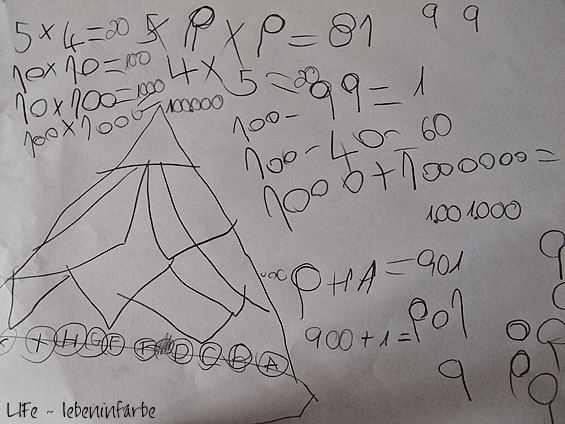 5 x 4 = 20
9 x 9 = 81
9 9
10 x 10 = 100
4 x 5 = 20
10 x 100 = 1000
100 - 99 = 1
100 x 1000 = 100000
100 - 40 = 60
1000 + 1000000 =
1.001.000
9 + 1 = 901
900 + 1 = 901
9
I H G F E D C B A
LIFe ~ lebeninfarbe